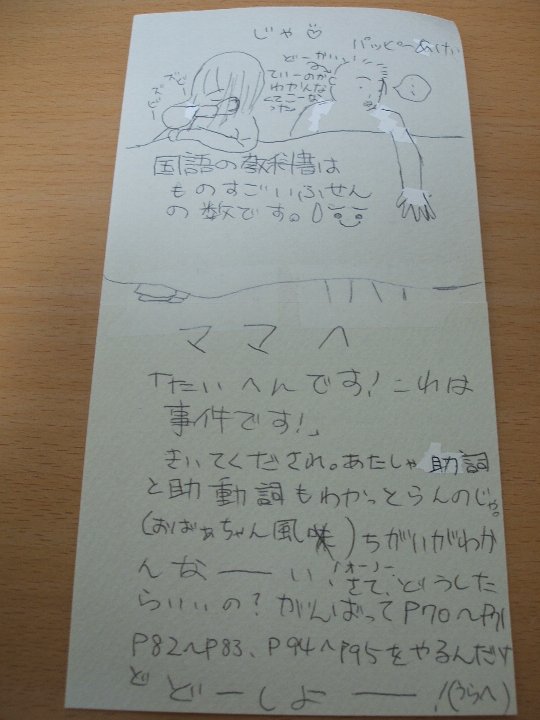 じゃ♡
パッピーあけい
どーかい
てぃーのか
わかんな
くてこーな
った
ズピ
ズピー
国語の教科書は
ものすごいふせん
の数です。
ママへ
「たいへんです!これは
事件です!」
きいてくだされ。あたしゃ助詞
と助動詞もわかっとらんのじゃ。
(おばぁちゃん風味)ちがいがわか
んなーい!オーノー さて、どうした
らいいの?がんばってP70〜P71
P82〜P83、P94〜P95をやるんだけ
ど どーしよー!(うらへ)